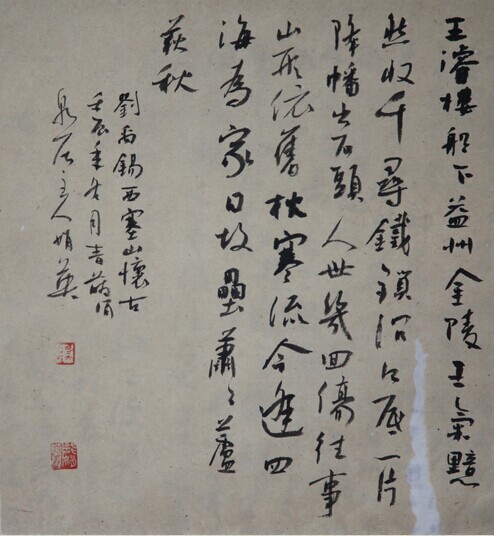 王濬樓船下益州金陵王氣黯
然收千尋鐵鎖沉江底一片
降幡出石頭人世幾回傷往事
山形依舊枕寒流今逢四
海為家日故壘蕭々蘆
荻秋
劉禹錫西塞山懷古
壬辰年月吉
主人